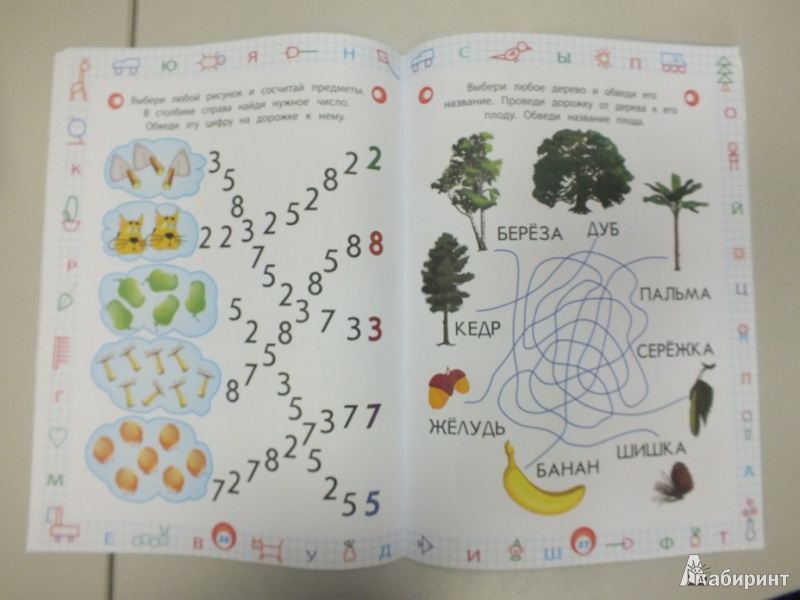 Ю Я Н
Выбери любой рисунок и сосчитай предметы.
В столбике справа найди нужное число.
Обведи эту цифру на дорожке к нему.
3 5 8 2 2
2 2 3 2 5 2
7 5 2 8 5 8 8
5 2 8 3 7 3 3
8 7 5 3 5 7 3 7 7
7 2 7 8 2 5 2 5 5
К
Р
Г
М
Е В 26 У Д
С Ы П
Выбери любое дерево и обведи его
название. Проведи дорожку от дерева к его
плоду. Обведи название плода.
БЕРЁЗА
ДУБ
ПАЛЬМА
КЕДР
СЕРЁЖКА
ЖЁЛУДЬ
ШИШКА
БАНАН
О
Й
Ц
Л
А
И Ш 27 Ф Т
Лабиринт